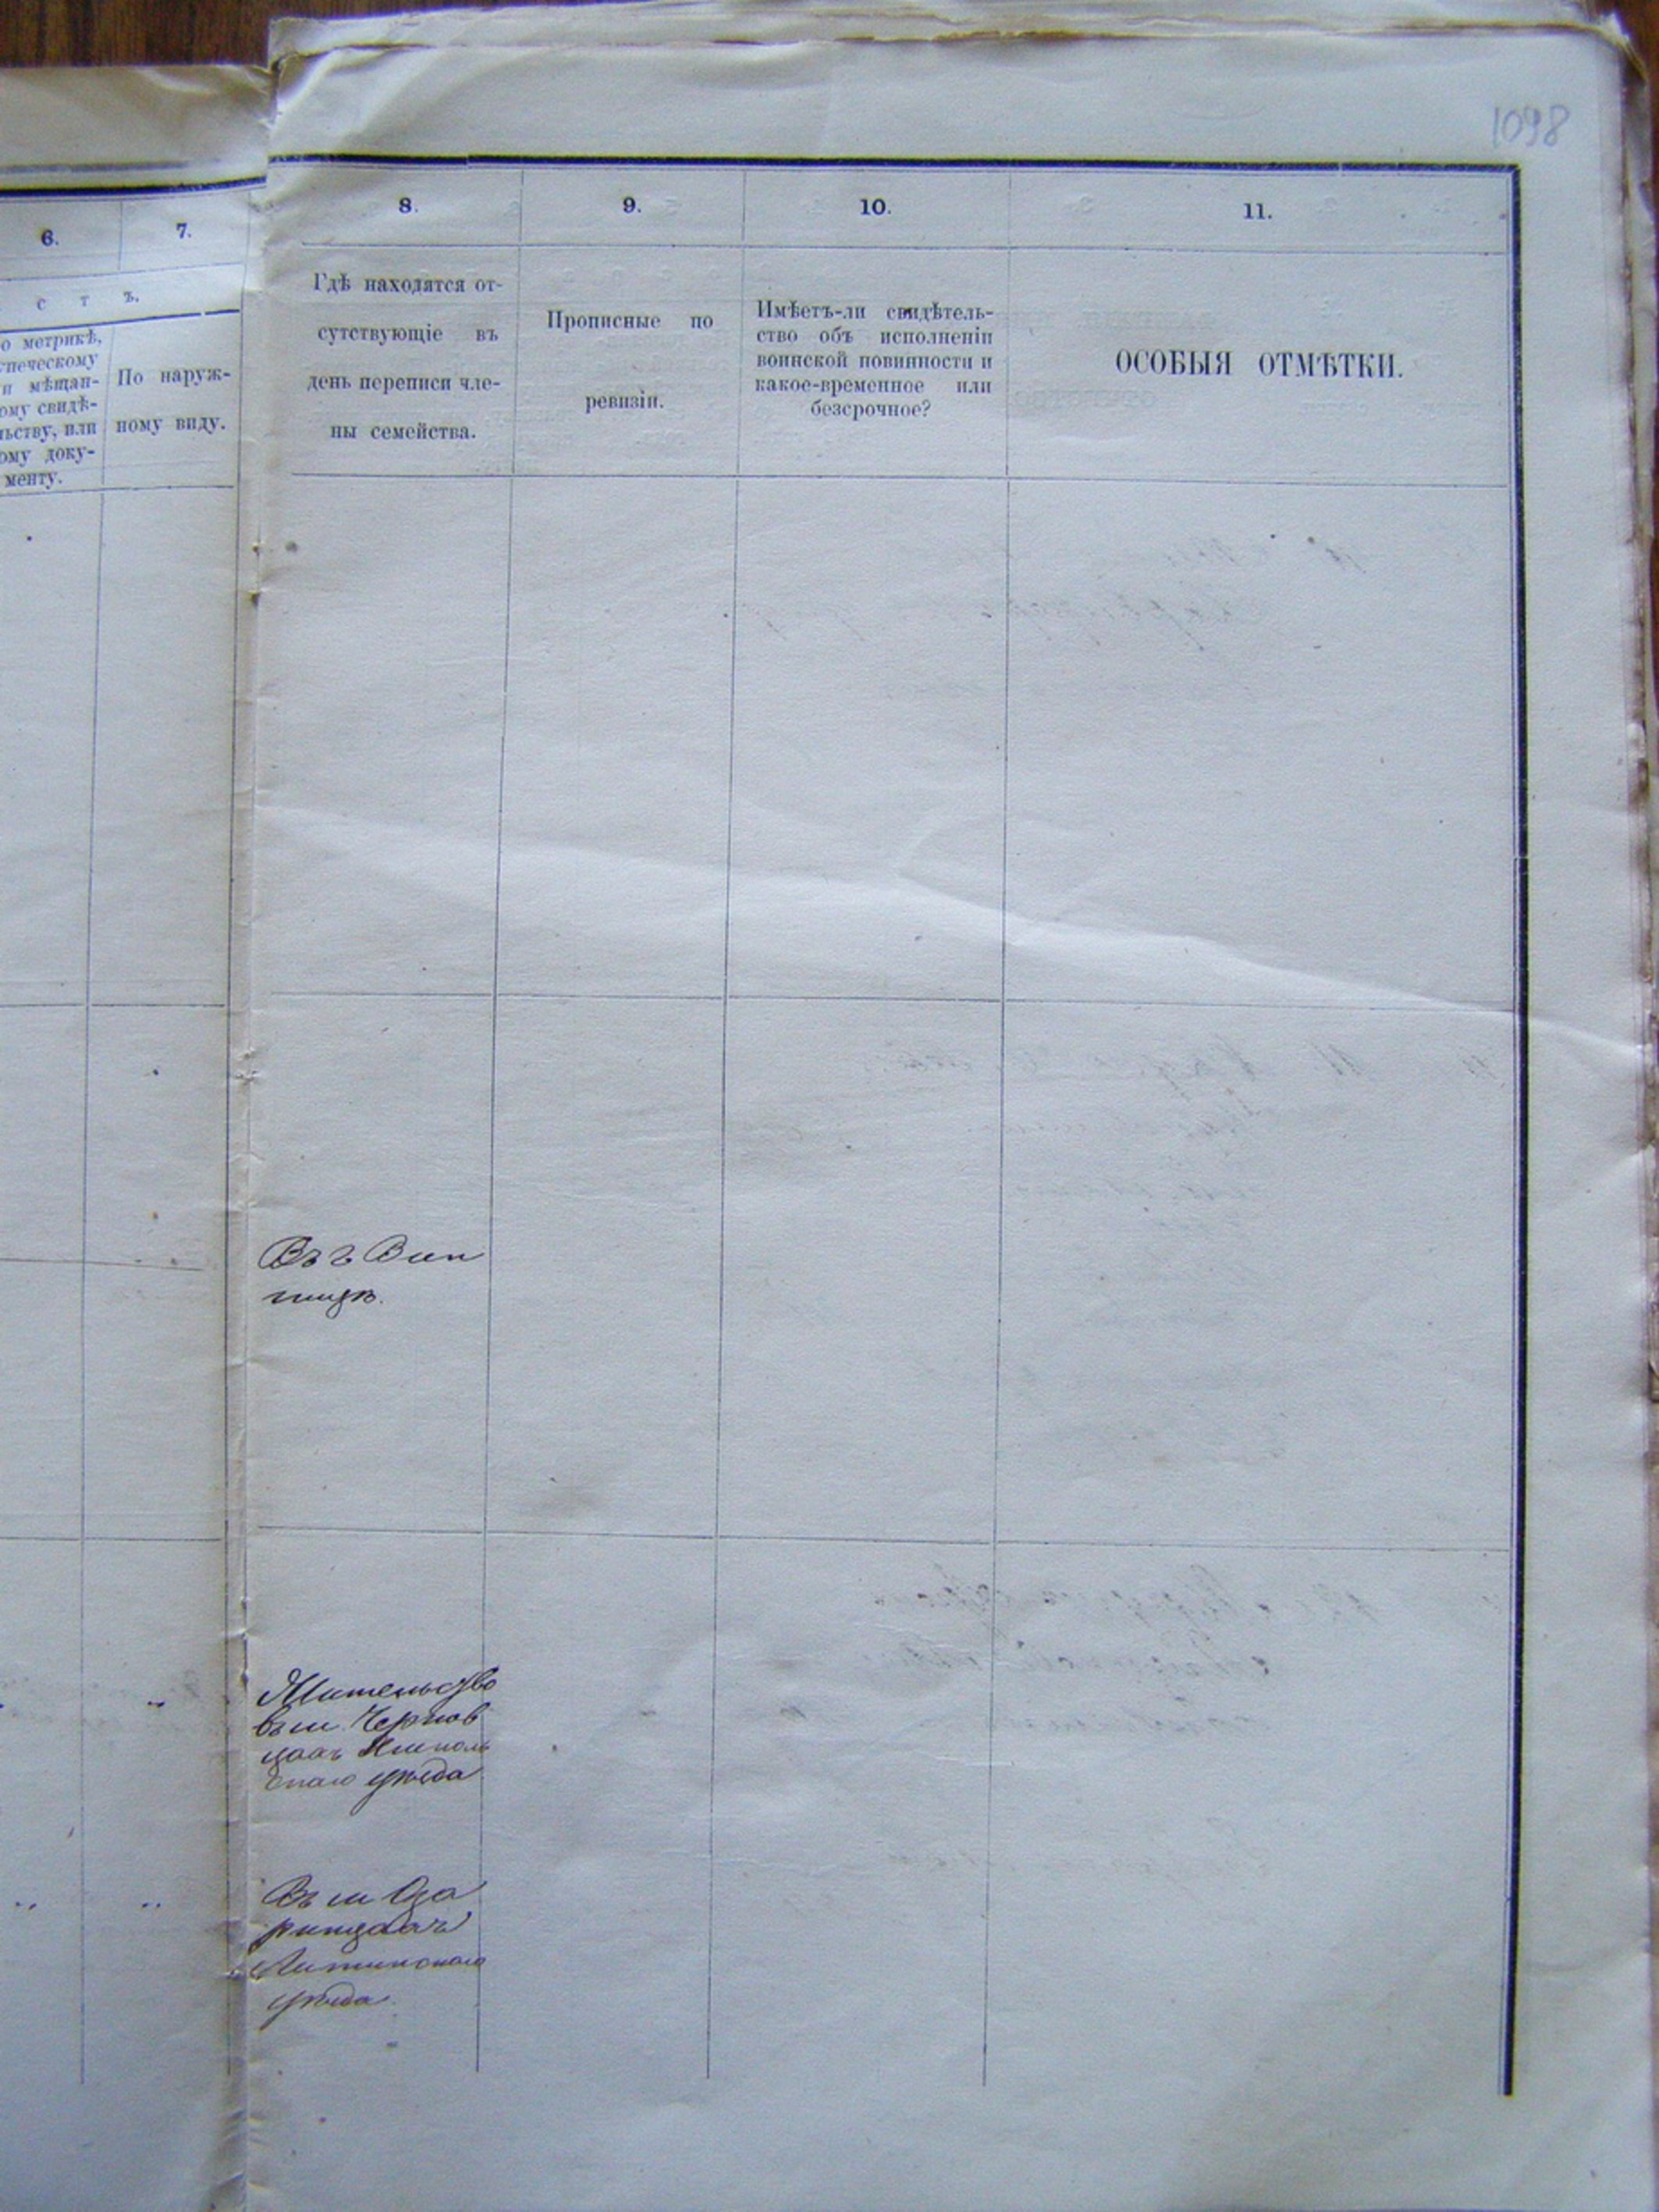 1098
6.
7.
с т ъ.
о метрикѣ,
печескому
и мѣщан-
ому свидѣ-
льству, или
ому доку-
менту.
По наруж-
ному виду.
8.
9.
10.
11.
Гдѣ находятся от-
сутствующіе въ
день переписи чле-
ны семейства.
Прописные по
ревизіи.
Имѣетъ-ли свидѣтель-
ство объ исполненіи
воинской повинности и
какое-временное или
безсрочное?
ОСОБЫЯ ОТМѢТКИ.
Въ г Вин
ницѣ.
Жительство
въ м. Чернов
цахъ Ямполь
скаго уѣзда
Въ м Оза
ринцахъ
уѣзда.